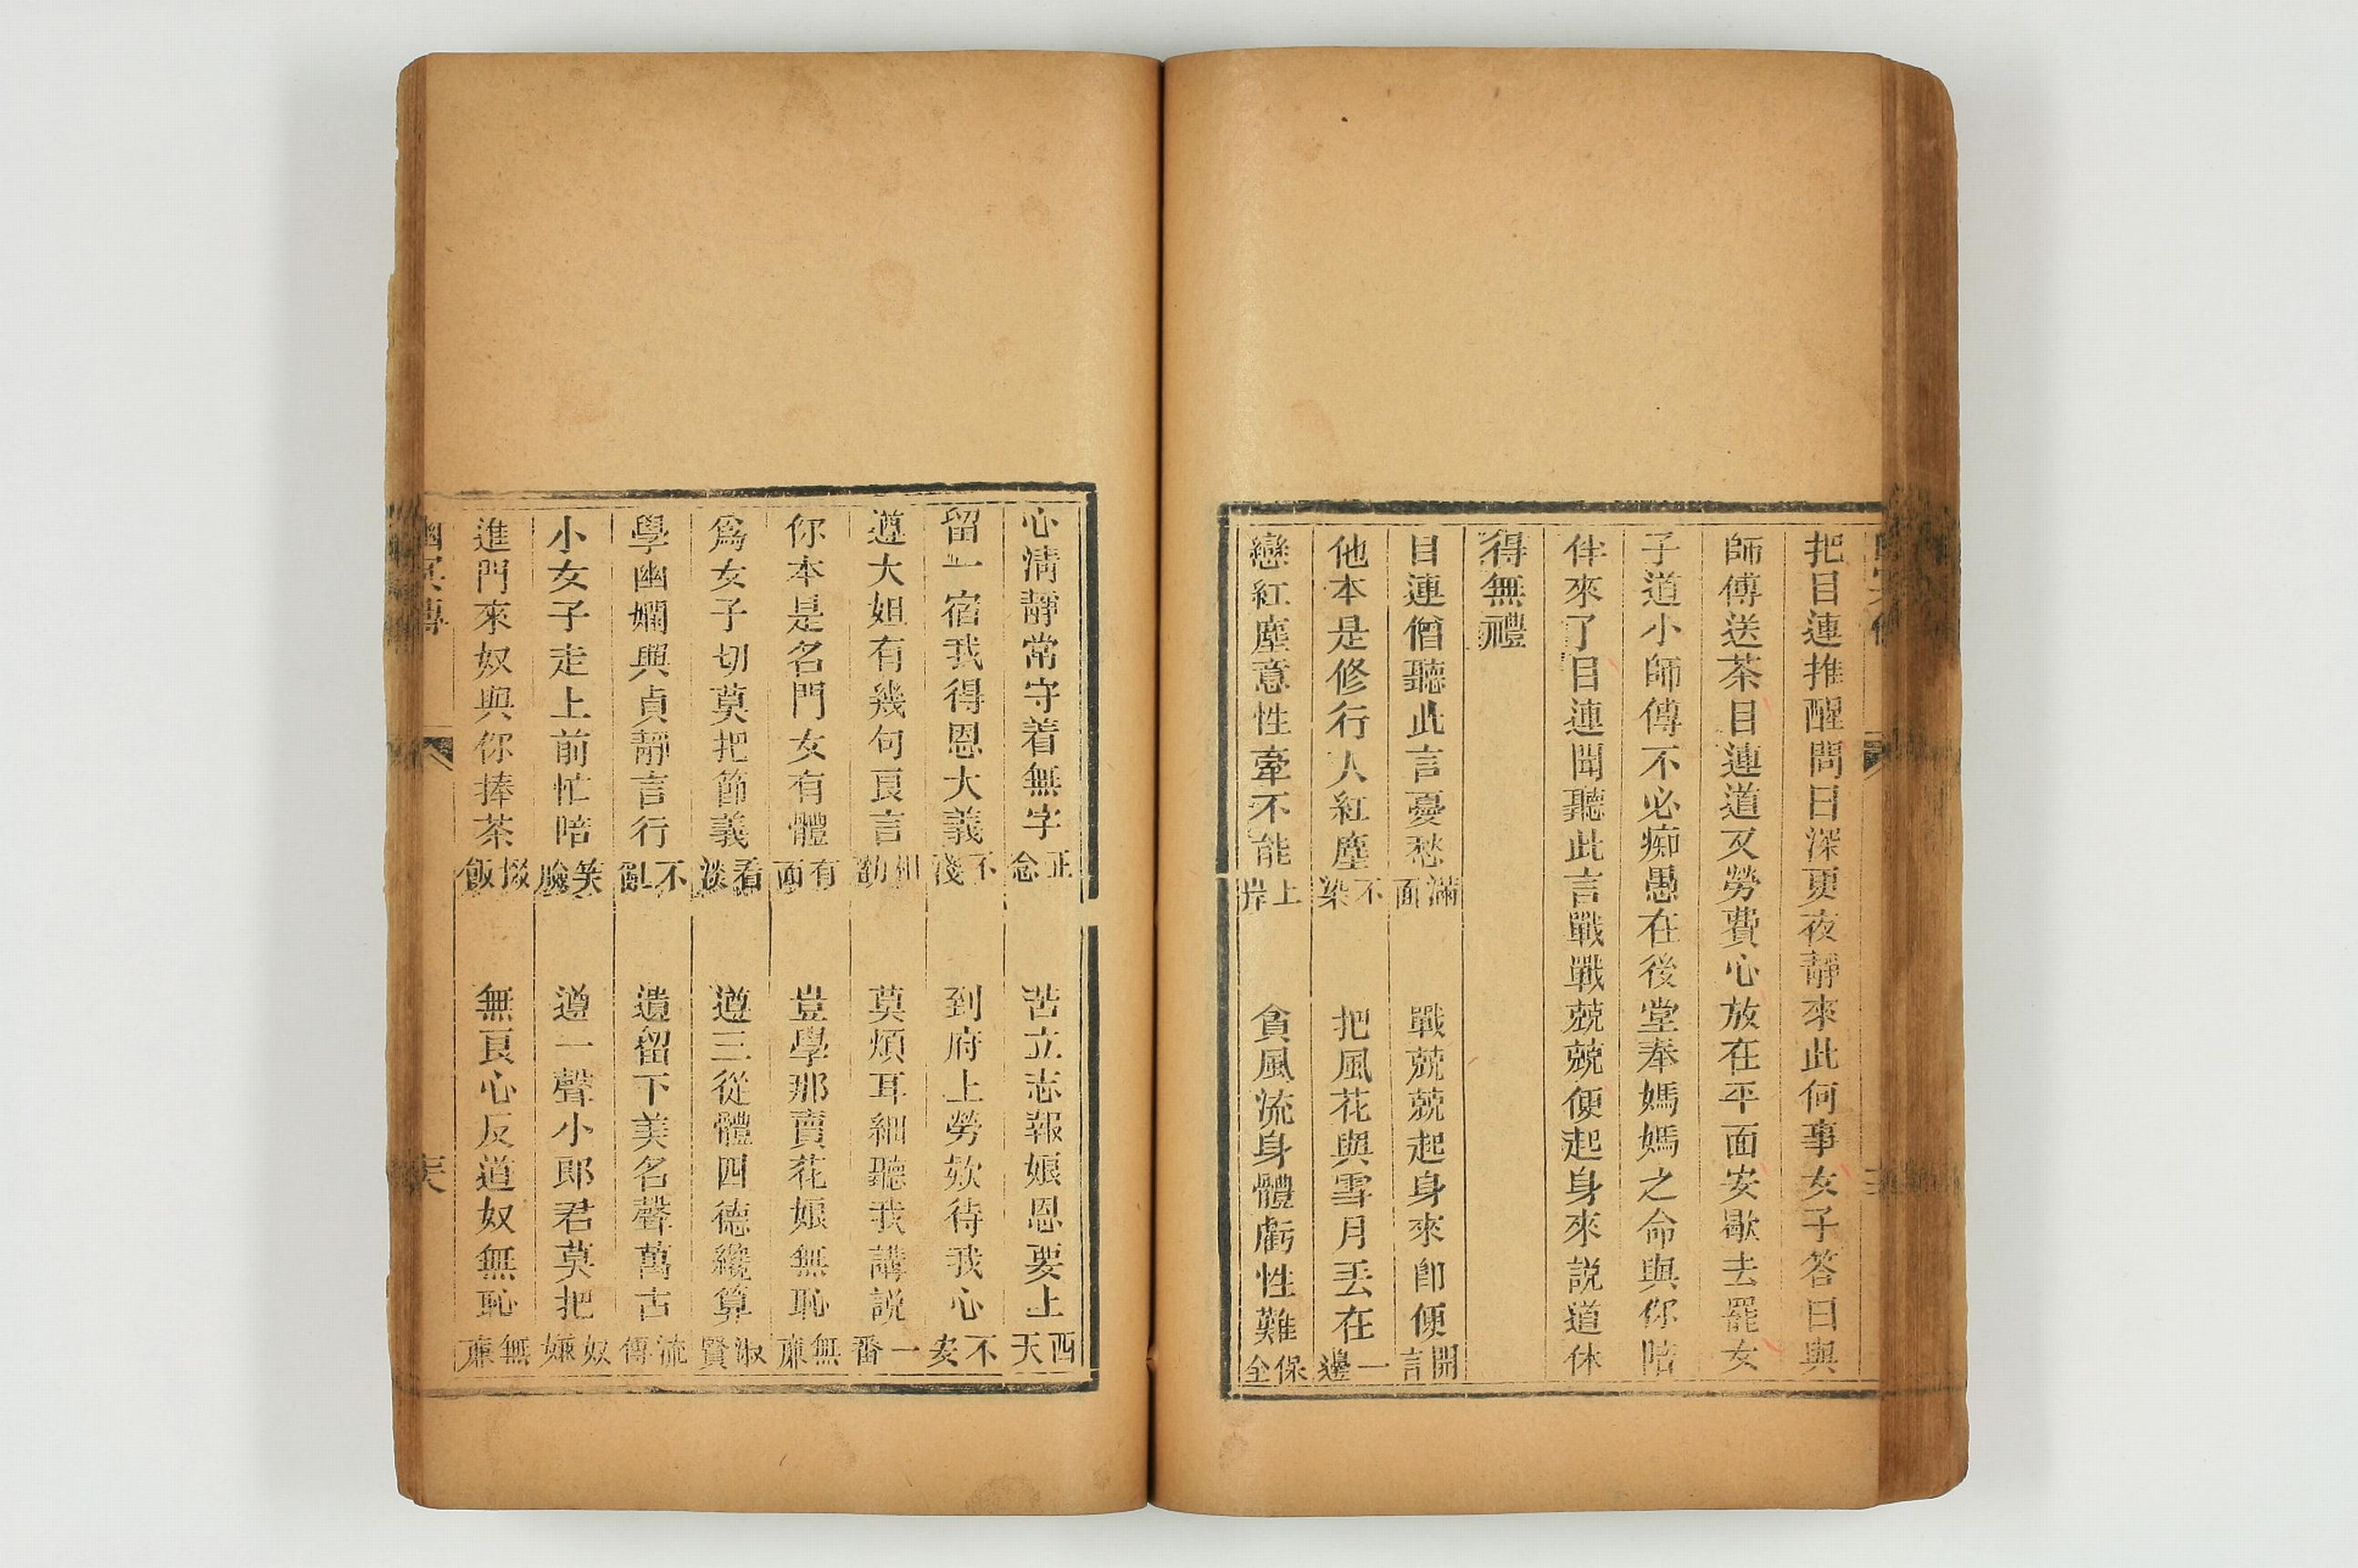 把目連推醒問曰深更夜靜來此何事女子答曰與
師傅送茶目連道又勞費心放在平面安歇去罷女
子道小師傅不必痴愚在後堂奉媽媽之命與你陪
伴來了目連聞聽此言戰戰兢兢便起身來説道休
得無禮
目連僧聽此言憂愁滿面 戰兢兢起身來卽便開言
他本是修行人紅塵不染 把風花與雪月丢在一邊
戀紅塵意性牽不能上岸 貪風流身體虧性難保全
心清靜常守着無字正念 苦立志報娘恩要上西天
留一宿我得恩大義不淺 到府上勞欵待我心不安
遵大姐有幾句良言相勸 莫煩耳細聽我講説一番
你本是名門女有體有面 豈學那賣花娘無恥無廉
爲女子切莫把節義看淡 遵三從體四德纔算淑賢
學幽嫻與貞靜言行不亂 遺留下美名聲萬古流傳
小女子走上前忙陪笑臉 遵一聲小郎君莫把奴嫌
進門來奴與你捧茶掇飯 無良心反道奴無恥無廉
幽冥傳